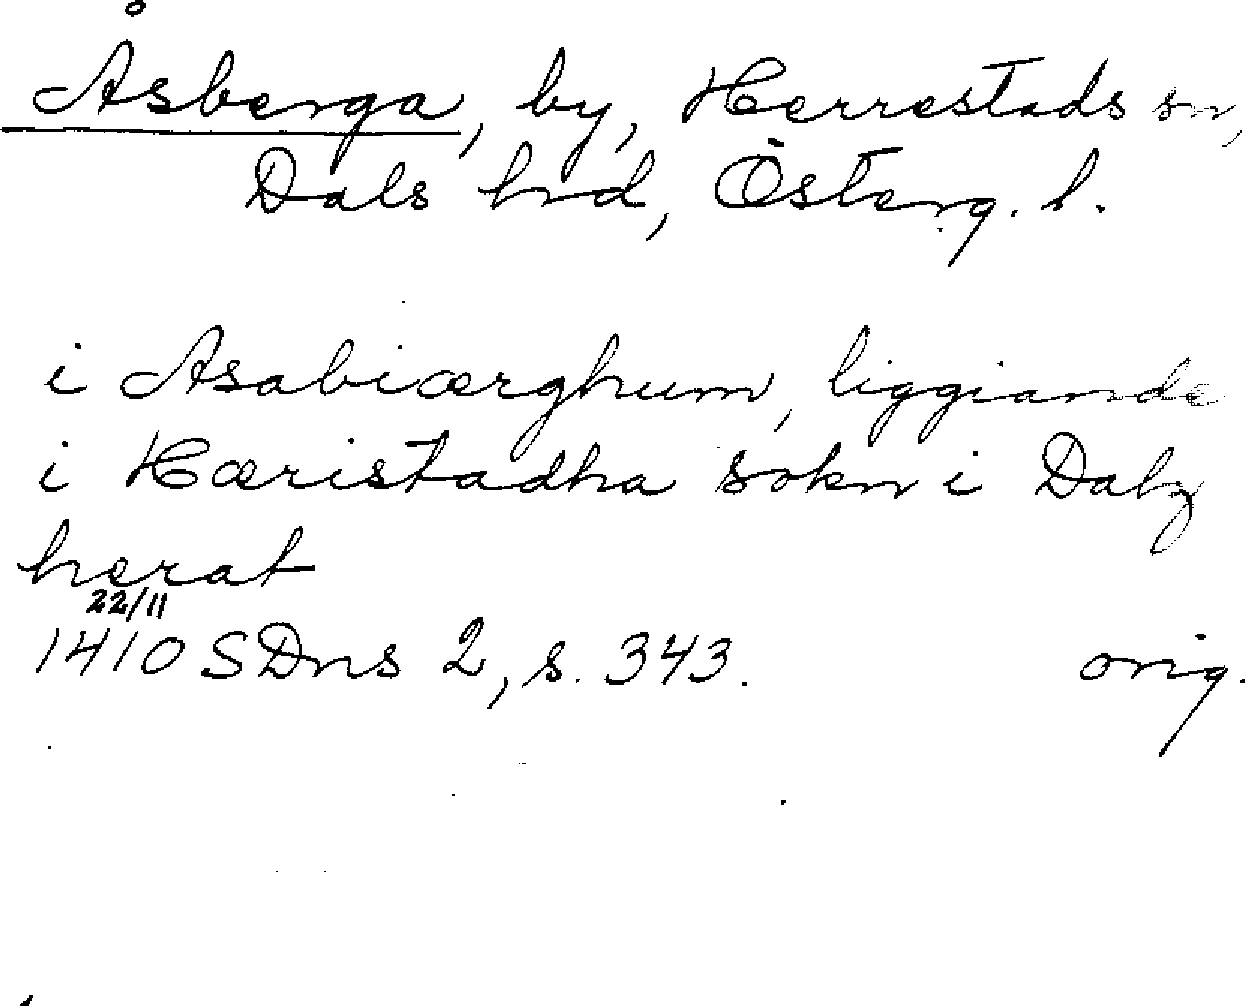 Åsberga, by, Herrestads sn,
Dals hrd, Österg. l.
i Asabiærghum, liggiande
i Hæristadha sokn i Dalz
herat
22/11
1410 SDns 2, s. 343. orig.